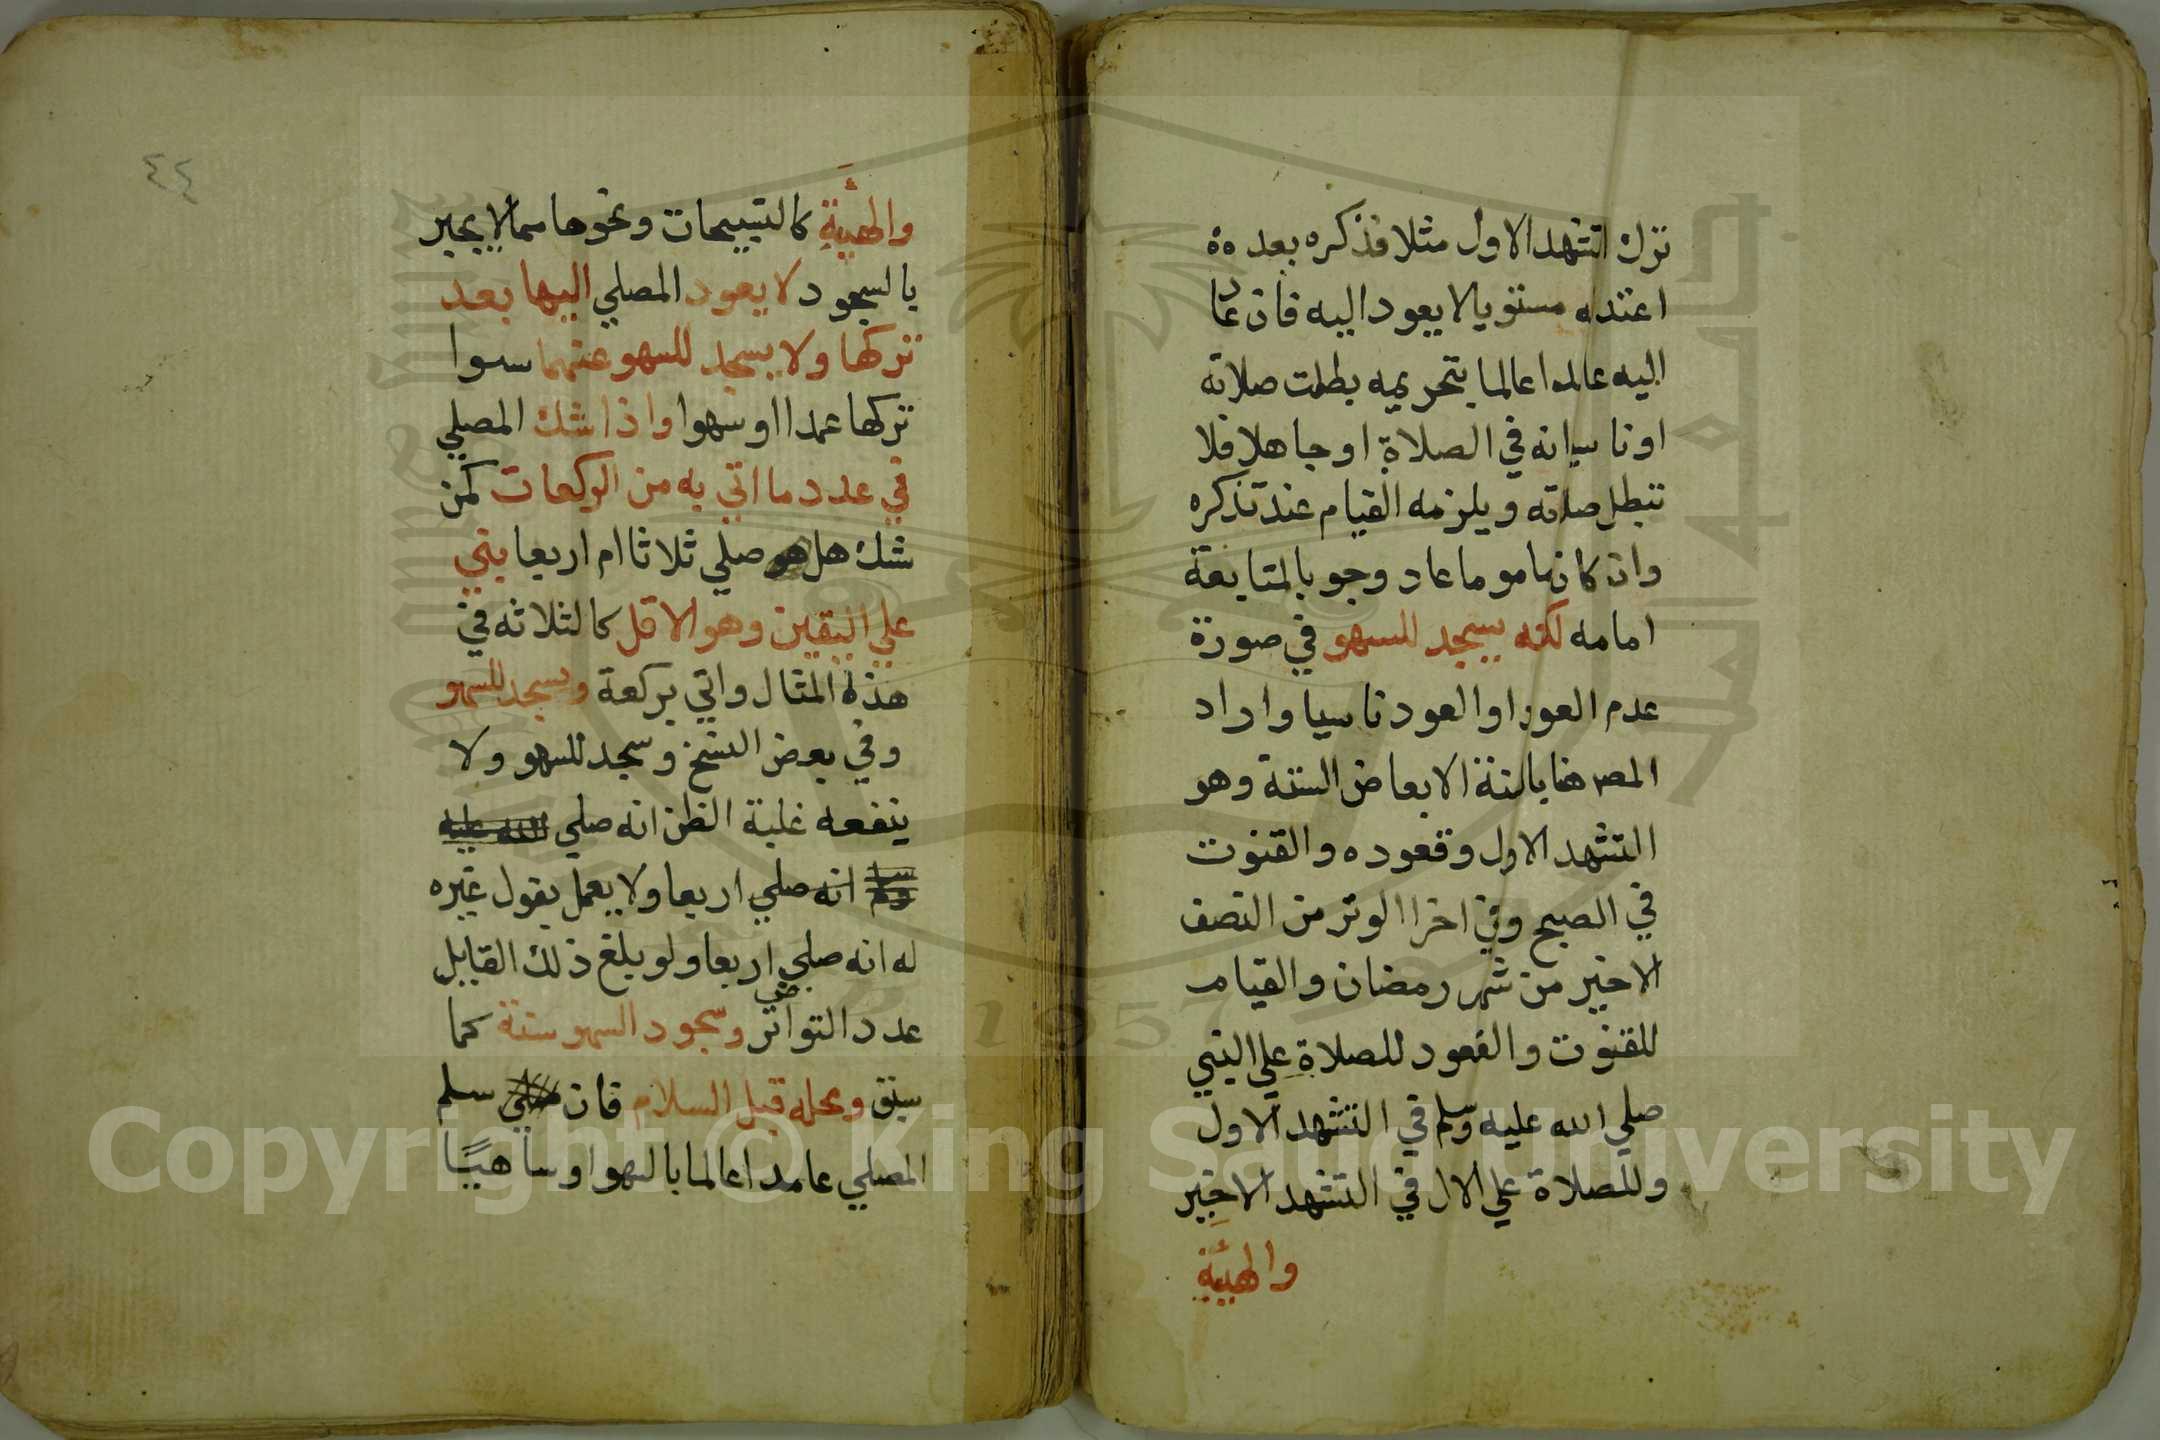 ترك التشهد الاول مثلا فذكره بعد
اعتداله مستويا لا يعود اليه فان عاد
اليه عامدا عالما بتحريمه بطلت صلاته
او ناسيا انه في الصلاة او جاهلا فلا
تبطل صلاته ويلزمه القيام عند تذكره
وان كان ماموما عاد وجوبا لمتابعة
امامه لكنه يسجد للسهو في صورة
عدم العود او العود ناسيا واراد
المص هنا بالسنة الابعاض الستة وهو
التشهد الاول وقعوده والقنوت
في الصبح وفي اخر الوتر من النصف
الاخير من شهر رمضان والقيام
للقنوت والقعود للصلاة علي النبي
صلي الله عليه وسلم في التشهد الاول
وللصلاة علي الال في التشهد الاخير
والهيئة
٤٤
والهيئة كالتسبيحات ونحوها مما لا يجبر
بالسجود لا يعود المصلي اليها بعد
تركها ولا يسجد للسهو عنهما سوا
تركها عمدا او سهوا واذا شك المصلي
في عدد ما اتي به من الركعات كمن
شك هل هو صلي ثلاثا ام اربعا بني
علي اليقين وهو الاقل كالثلاثه في
هذه المثال واتي بركعة ويسجد للسهو
وفي بعض النسخ وسجد للسهو ولا
ينفعه غلبة الظن انه صلي الله عليه
وسلم انه صلي اربعا ولا يعمل بقول غيره
له انه صلي اربعا ولو بلغ ذلك القايل
عدد التواتر وسجود السهو سنة كما
سبق ومحله قبل السلام فان صلي سلم
المصلي عامدا عالما بالسهو او ساهيا
1957
Copyright © King Saud University